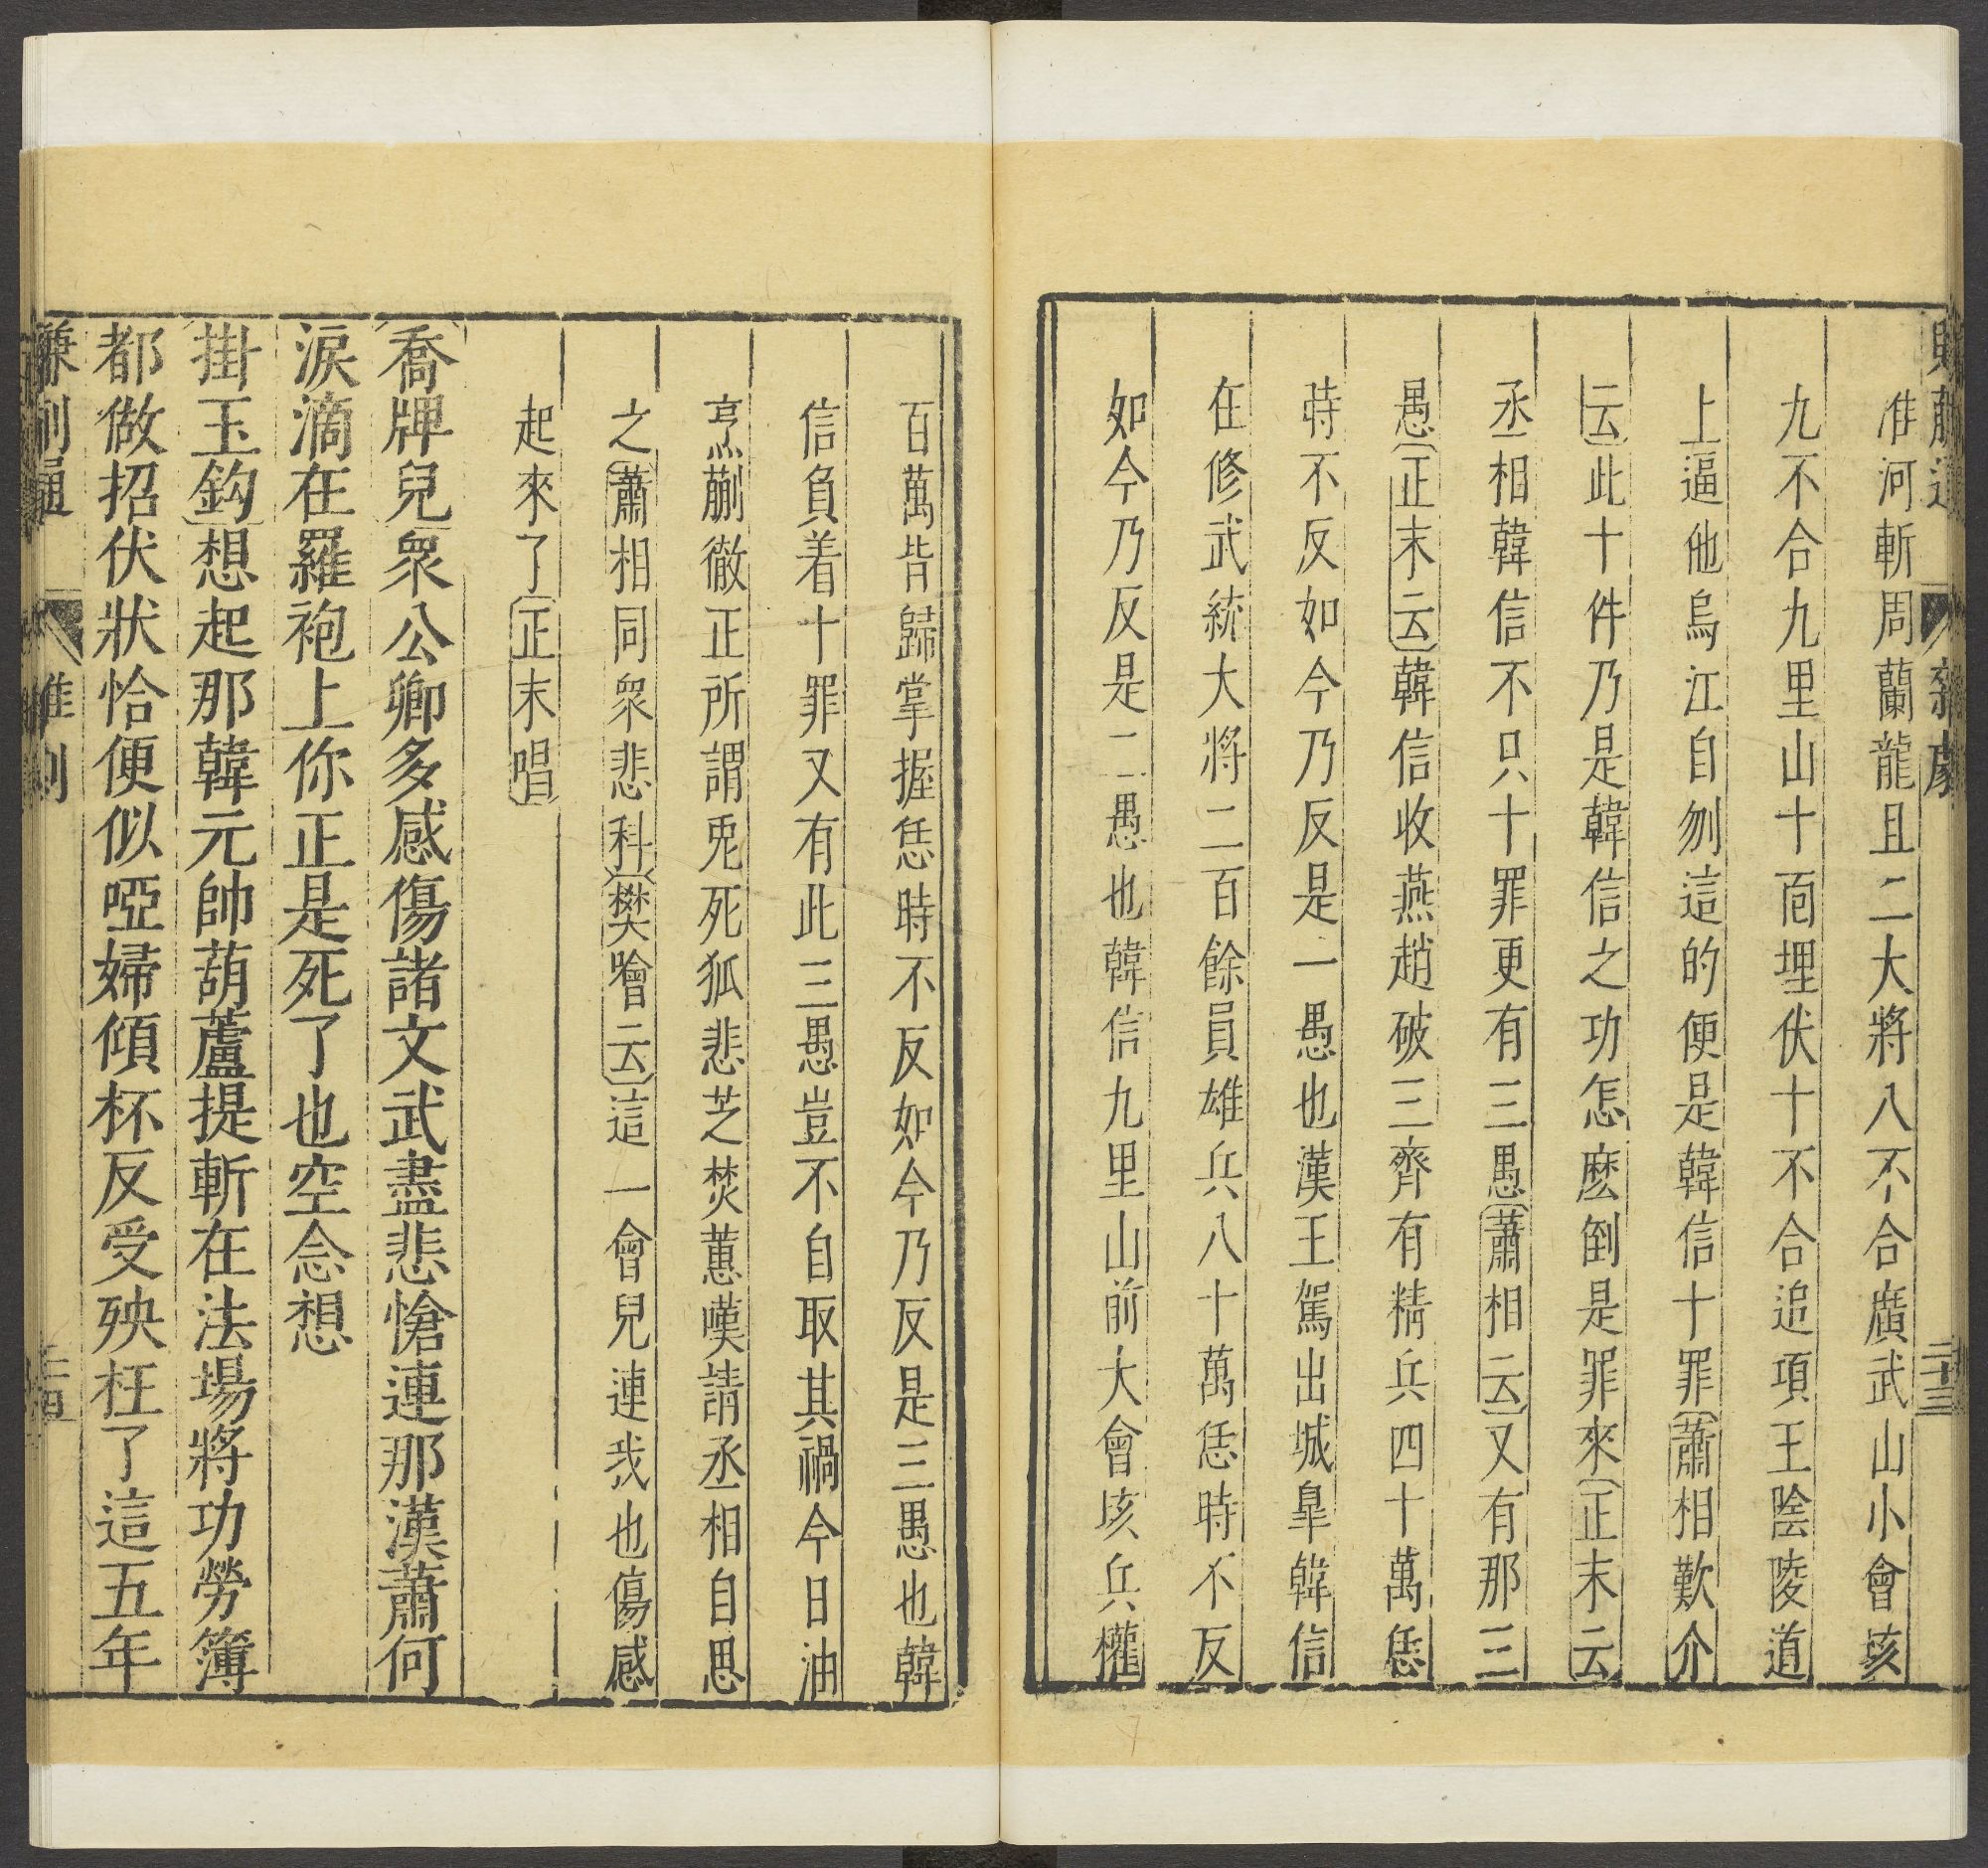 雜劇
二十三
淮河斬周蘭龍且二大將八不合廣武山小會垓
九不合九里山十面埋伏十不合追項王陰陵道
上逼他烏江自刎這的便是韓信十罪〔蕭相歎介
云〕此十件乃是韓信之功怎麽倒是罪來〔正末云〕
丞相韓信不只十罪更有三愚〔蕭相云〕又有那三
愚〔正末云〕韓信收燕趙破三齊有精兵四十萬恁
時不反如今乃反是一愚也漢王駕出城臯韓信
在修武統大將二百餘員雄兵八十萬恁時不反
如今乃反是二愚也韓信九里山前大會垓兵權
百萬皆歸掌握恁時不反如今乃反是三愚也韓
信負着十罪又有此三愚豈不自取其禍今日油
烹蒯徹正所謂兎死狐悲芝焚蕙嘆請丞相自思
之〔蕭相同衆悲科〕〔樊噲云〕這一會兒連我也傷感
起來了〔正末唱〕
〔喬牌兒〕衆公卿多感傷諸文武盡悲愴連那漢蕭何
淚滴在羅袍上你正是死了也空念想
〔掛玉鈎〕想起那韓元帥葫蘆提斬在法場將功勞簿
都做招伏狀恰便似啞婦傾杯反受殃枉了這五年